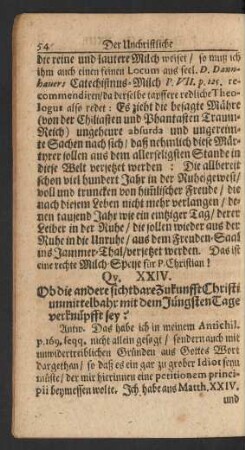 54 Der Unchristliche
die reine und lautere Milch weiset / so muß ich
ihm auch einen feinen Locum aus seel. D. Dann-
hauers Catechismus-Milch P. VII. p. 125. re-
commendiren / da derselbe tapffere redliche Theo-
logus also redet: Es zieht die besagte Mähre
(von der Chiliasten und Phantasten Traum-
Reich) ungeheure absurda und ungereim-
te Sachen nach sich / daß nehmlich diese Mär-
tyrer sollen aus dem allerseligsten Stande in
diese Welt versetzet werden: Die allbereit
schon viel hundert Jahr in der Ruhe gewest /
voll und truncken von himlischer Freude / die
nach diesem Leben nicht mehr verlangen / de-
nen tausend Jahr wie ein eintziger Tag / derer
Leiber in der Ruhe / die sollen wieder aus der
Ruhe in die Unruhe / aus dem Freuden-Saal
ins Jammer-Thal / versetzet werden. Das ist
eine rechte Milch-Speise für P. Christian!
Qv. XXIV.
Ob die andere sichtbare Zukunfft Christi
unmittelbahr mit dem Jüngsten Tage
verknüpfft sey?
Antw. Das habe ich in meinem Antichil.
p. 169. seqq. nicht allein gesagt / sondern auch mit
unwidertreiblichen Gründen aus Gottes Wort
dargethan / so daß es ein gar zu grober Idiot seyn
müste / der mir hierinnen eine petitionem princi-
pii beymessen wolte. Ich habe aus Matth. XXIV.
und